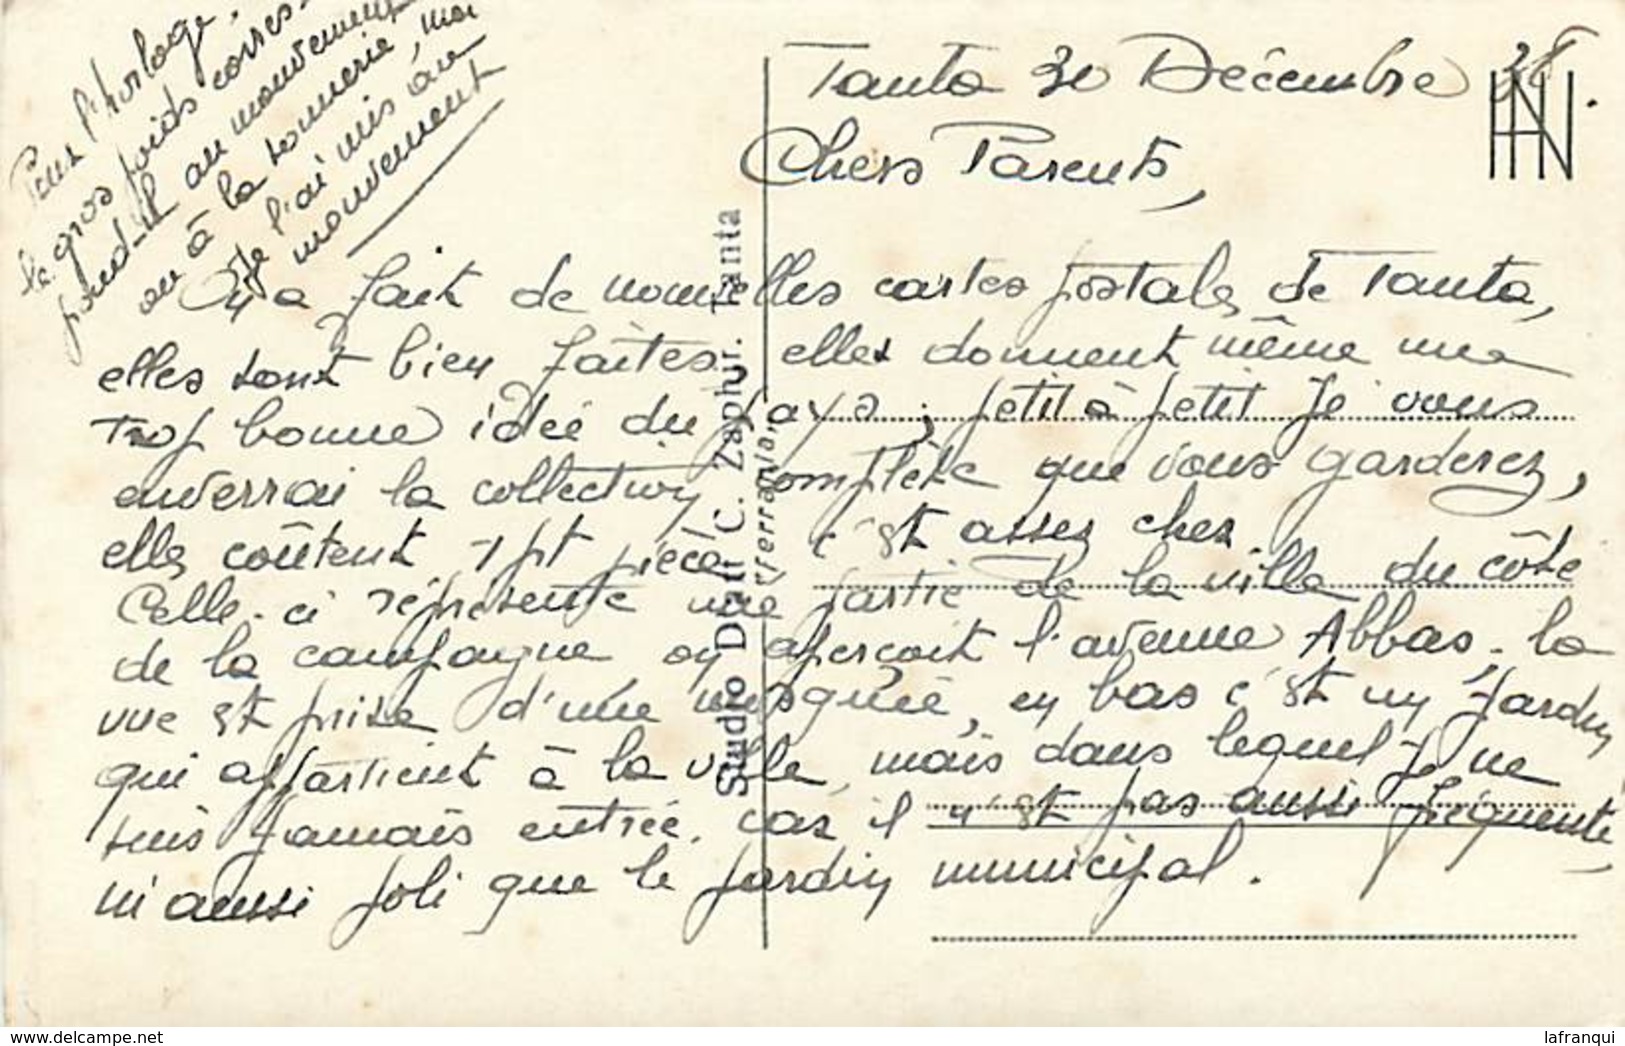 Tanta 30 Décembre 38.
Chers Parents,
On a fait de nouvelles cartes postales de Tanta,
elles sont bien faites, elles donnent même une
trop bonne idée du pays ; petit à petit je vous
enverrai la collection complète que vous garderez,
elles coûtent 1 pt pièce, c'est assez cher.
Celle-ci représente une partie de la ville du côté
de la campagne on aperçoit l'avenue Abbas. la
vue est prise d'une mosquée, en bas c'est un jardin
qui appartient à la ville, mais dans lequel je ne
suis jamais entrée, car il n'est pas aussi fréquenté,
ni aussi joli que le jardin municipal.
Pour l'horloge,
le gros poids corres-
pond-il au mouvement
ou à la sonnerie, moi
je l'ai mis au
mouvement
Studio Dr. C. Zaphir. Tanta
Ferrania
lafranqui